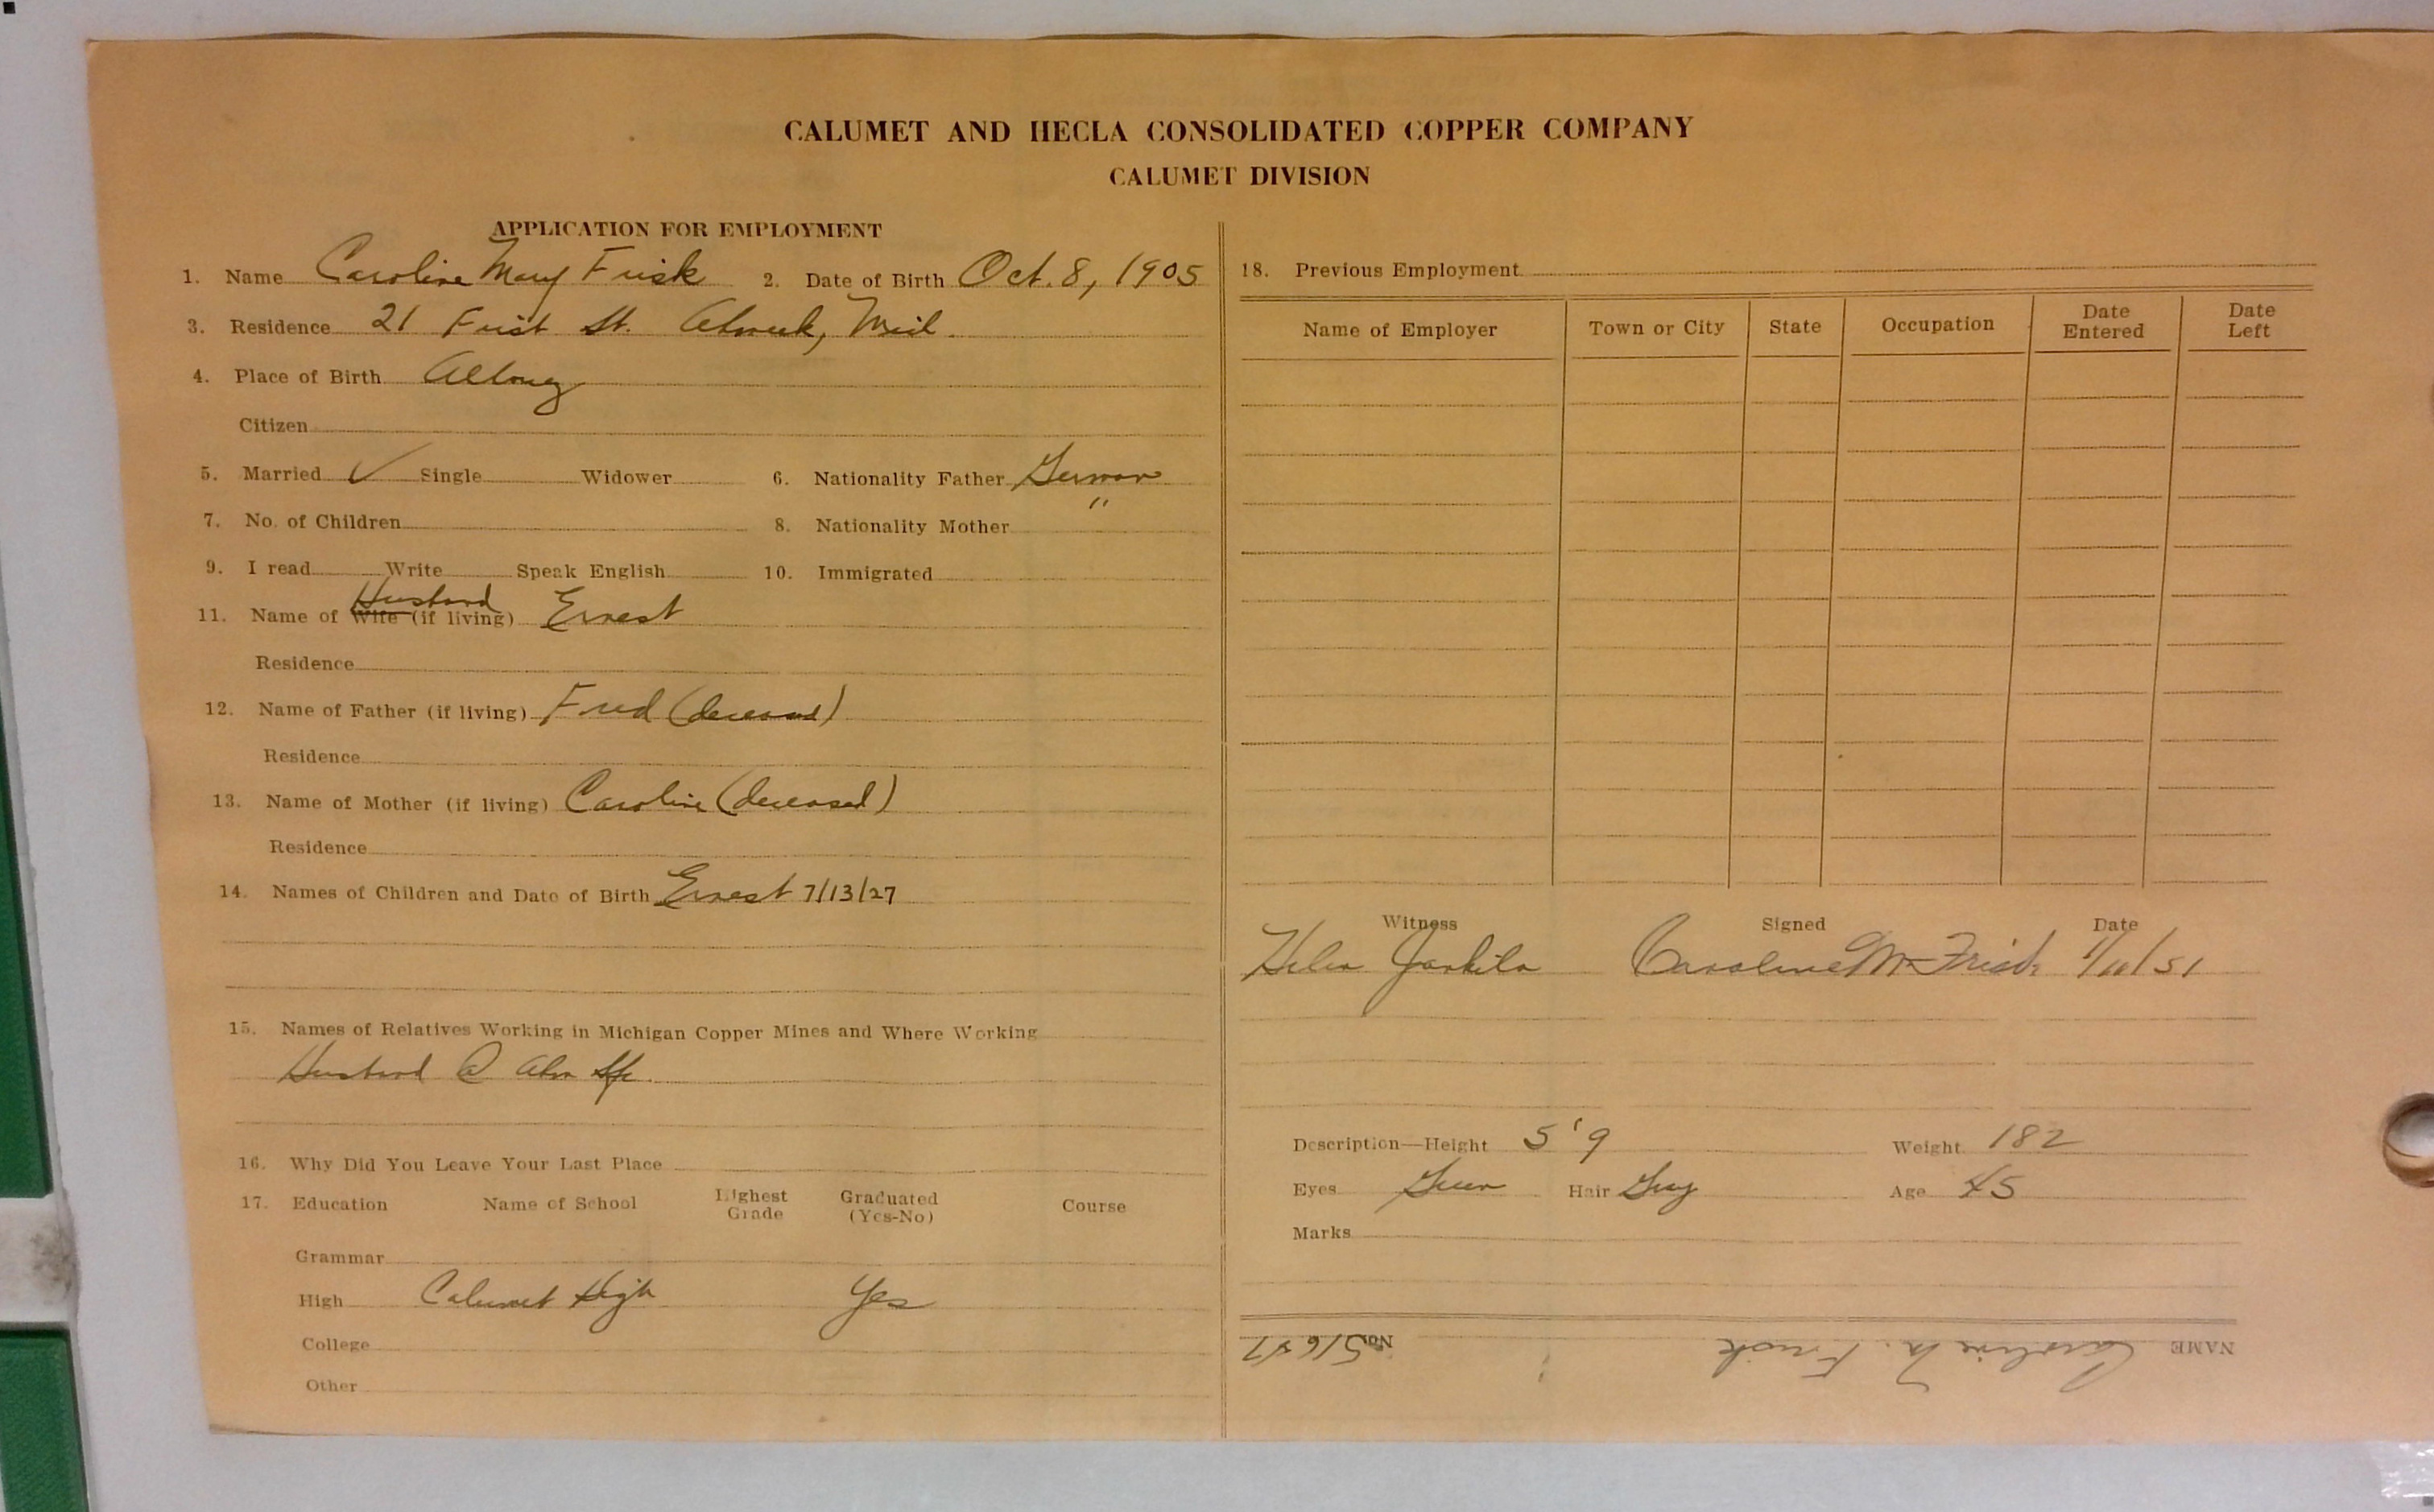 CALUMET AND HECLA CONSOLIDATED COPPER COMPANY
CALUMET DIVISION
APPLICATION FOR EMPLOYMENT
1. Name Caroline Mary Frisk 2. Date of Birth Oct. 8, 1905
3. Residence 21 First St. Ahmeek, Mich.
4. Place of Birth Allouez
Citizen
5. Married ✓ Single Widower 6. Nationality Father German
7. No. of Children 8. Nationality Mother "
9. I read Write Speak English 10. Immigrated
Husband
11. Name of Wife (if living) Ernest
Residence
12. Name of Father (if living) Fred (deceased)
Residence
13. Name of Mother (if living) Caroline (deceased)
Residence
14. Names of Children and Date of Birth Ernest 7/13/27
15. Names of Relatives Working in Michigan Copper Mines and Where Working
Husband @
16. Why Did You Leave Your Last Place
17. Education Name of School Highest Grade Graduated (Yes-No) Course
Grammar
High Calumet High Yes
College
Other
18. Previous Employment
Name of Employer Town or City State Occupation Date Entered Date Left
Witness Signed Date
Helen Caroline M Frisk /51
Description—Height 5'9 Weight 182
Eyes Green Hair Gray Age 45
Marks
NAME Caroline M. Frisk No.